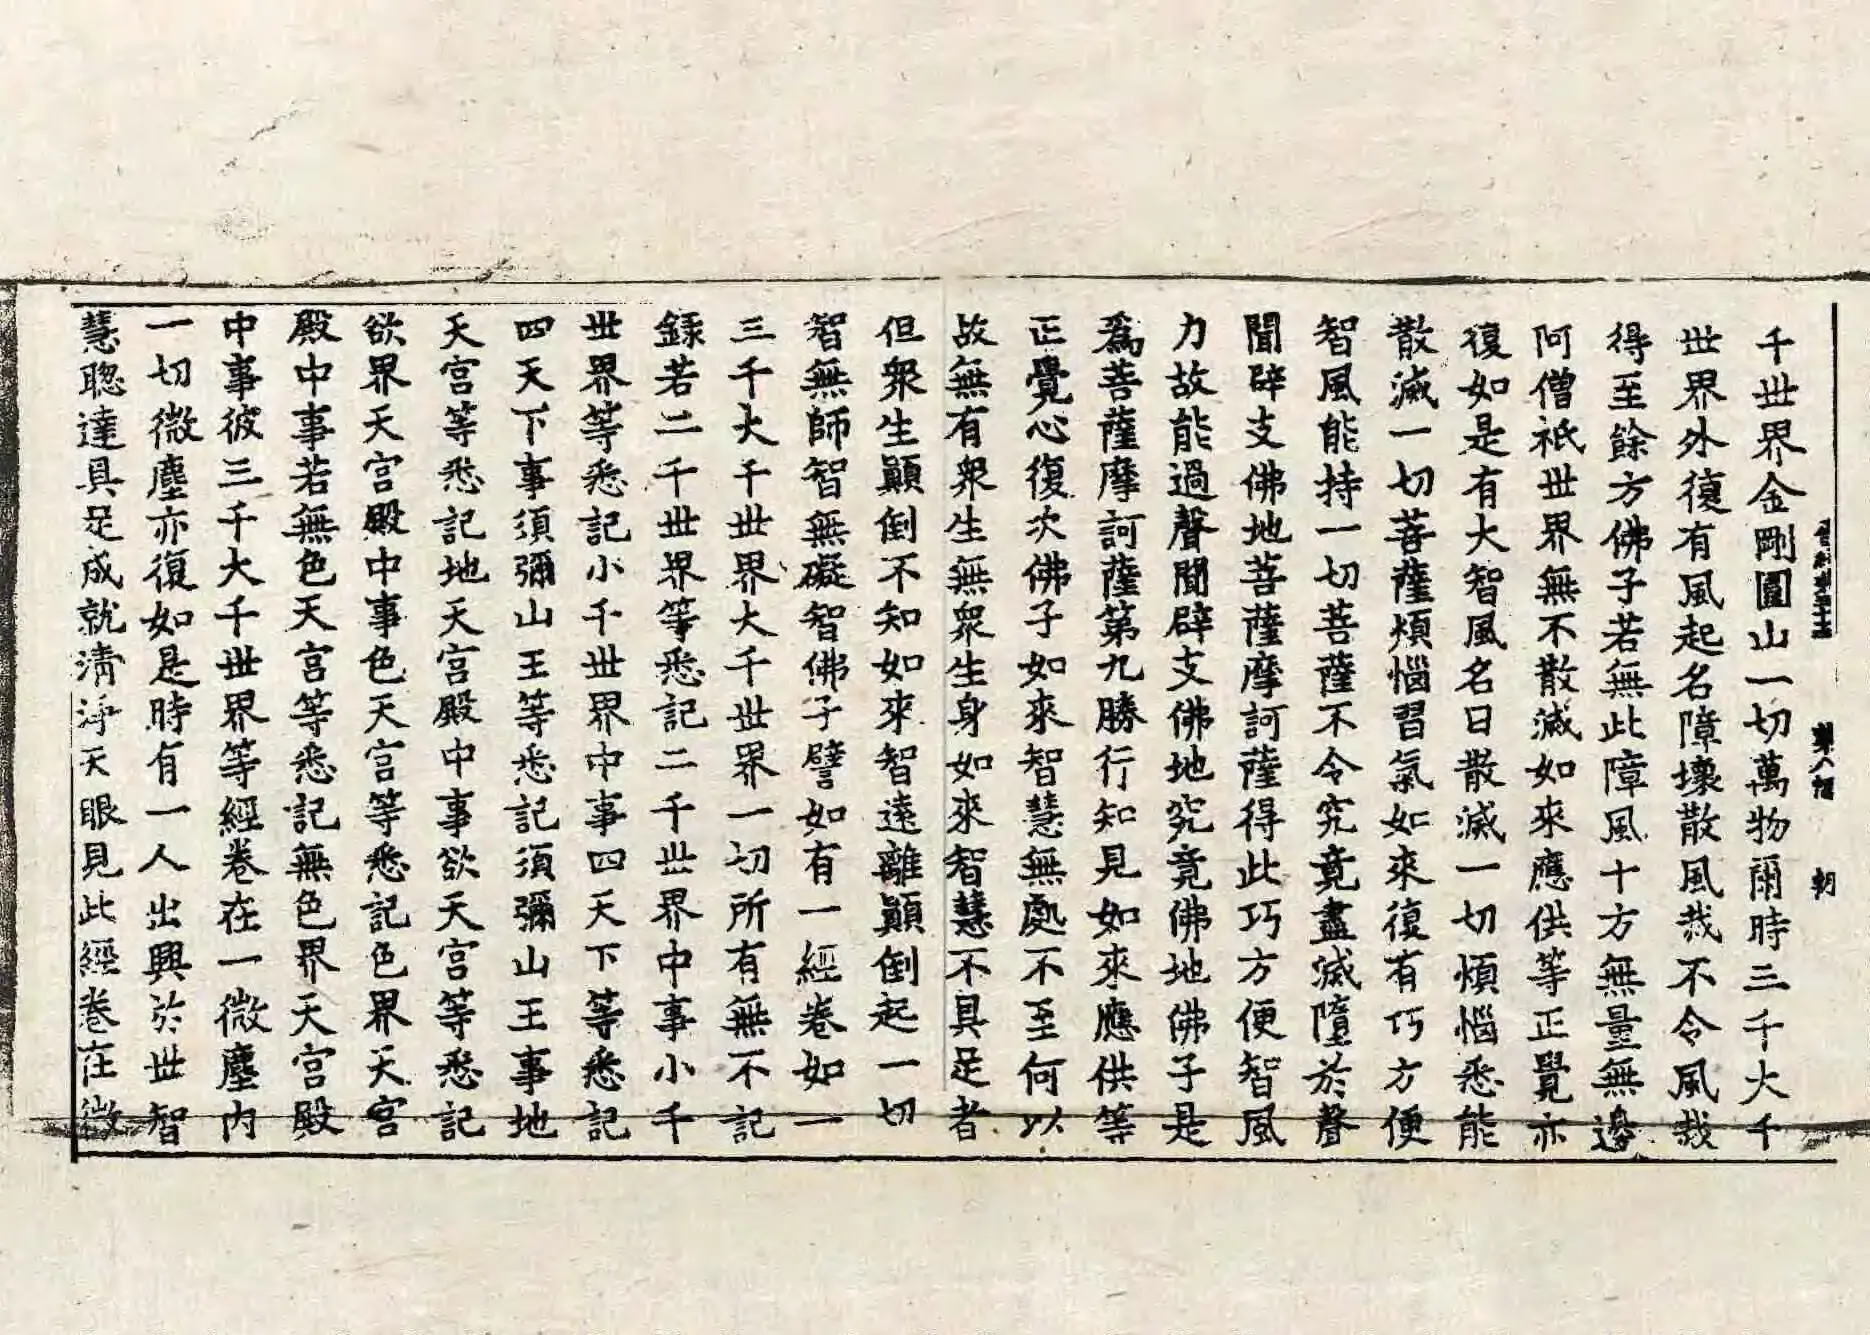 千世界金剛圍山一切萬物爾時三千大千
世界外復有風起名障壞散風裁不令風裁
得至餘方佛子若無此障風十方無量無邊
阿僧祇世界無不散滅如來應供等正覺亦
復如是有大智風名曰散滅一切煩惱悉能
散滅一切菩薩煩惱習氣如來復有巧方便
智風能持一切菩薩不令究竟盡滅墮於聲
聞辟支佛地菩薩摩訶薩得此巧方便智風
力故能過聲聞辟支佛地究竟佛地佛子是
為菩薩摩訶薩第九勝行知見如來應供等
正覺心復次佛子如來智慧無處不至何以
故無有眾生無眾生身如來智慧不具足者
但眾生顛倒不知如來智遠離顛倒起一切
智無師智無礙智佛子譬如有一經卷如一
三千大千世界大千世界一切所有無不記
錄若二千世界等悉記二千世界中事小千
世界等悉記小千世界中事四天下等悉記
四天下事須彌山王等悉記須彌山王事地
天宮等悉記地天宮殿中事欲天宮等悉記
欲界天宮殿中事色天宮等悉記色界天宮
殿中事若無色天宮等悉記無色界天宮殿
中事彼三千大千世界等經卷在一微塵內
一切微塵亦復如是時有一人出興於世智
慧聰達具足成就清淨天眼見此經卷在微